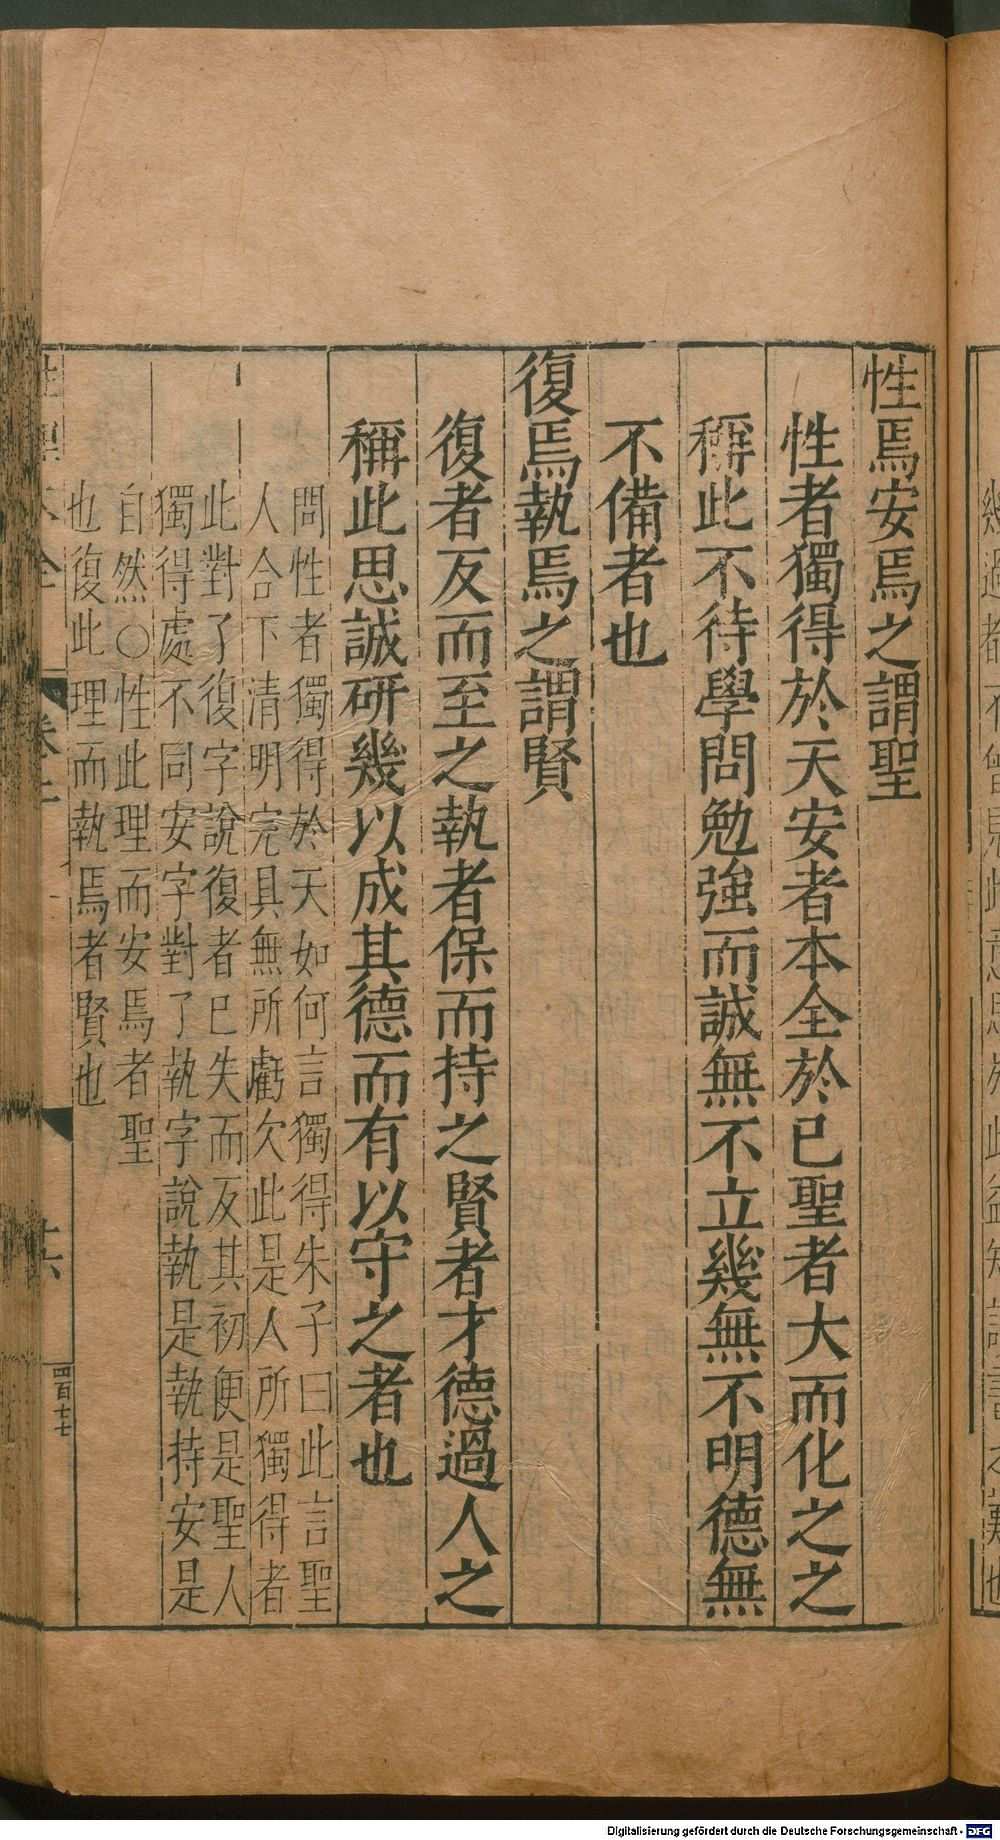 性焉安焉之謂聖
性者獨得於天安者本全於已聖者大而化之之
稱此不待學問勉強而誠無不立幾無不明德無
不備者也
復焉執焉之謂賢
復者反而至之執者保而持之賢者才德過人之
稱此思誠研幾以成其德而有以守之者也
問性者獨得於天如何言獨得朱子曰此言聖
人合下清明完具無所虧欠此是人所獨得者
此對了復字說復者已失而反其初便是聖人
獨得處不同安字對了執字說執是執持安是
自然○性此理而安焉者聖
也復此理而執焉者賢也
十六
四百十七
Digitalisierung gefördert durch die Deutsche Forschungsgemeinschaft - DFG